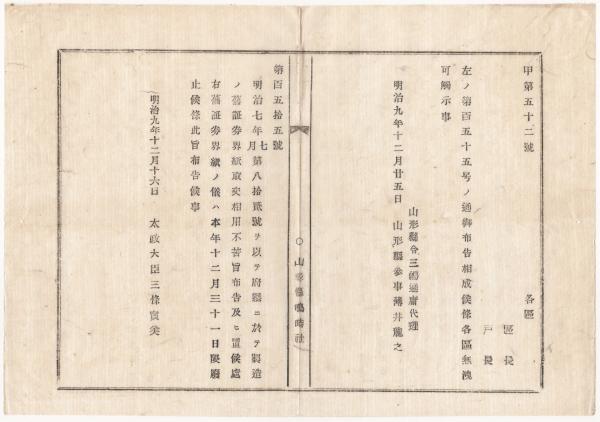 甲第五十二號
各區
區長
戸長
左ノ第百五十五号ノ通御布告相成候條各區無洩
可觸示事
山形縣令三島通庸代理
明治九年十二月廿五日 山形縣參事薄井龍之
○山形縣鳴時社
第百五拾五號
明治七年七月第八拾貳號ヲ以テ府縣ニ於テ製造
ノ舊証券界紙取交相用不苦旨布告及ヒ置候處
右舊証券界紙ノ儀ハ本年十二月三十一日限廢
止候條此旨布告候事
明治九年十二月十六日 太政大臣三條實美